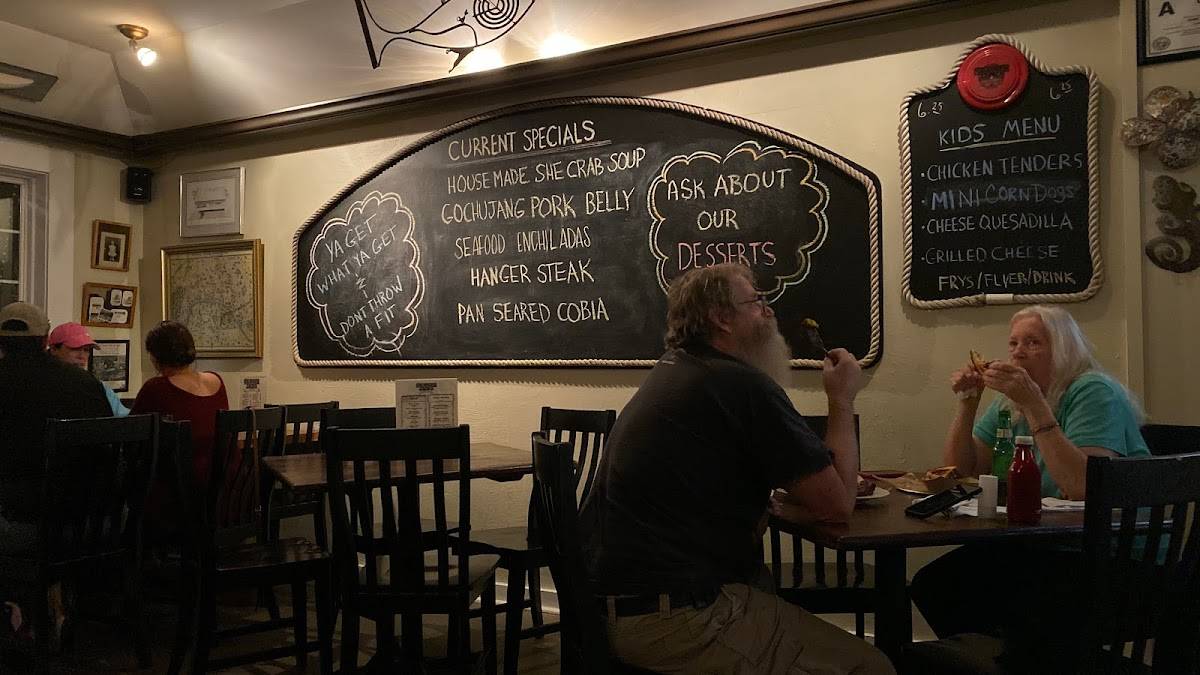 YA GET
WHAT YA GET
&
DONT THROW
A FIT
CURRENT SPECIALS
HOUSE MADE SHE CRAB SOUP
GOCHUJANG PORK BELLY
SEAFOOD ENCHILADAS
HANGER STEAK
PAN SEARED COBIA
ASK ABOUT
OUR
DESSERTS
6.25
6.25
KIDS MENU
• CHICKEN TENDERS
• MINI CORN DOGS
• CHEESE QUESADILLA
• GRILLED CHEESE
FRYS/FLYER/DRINK
A